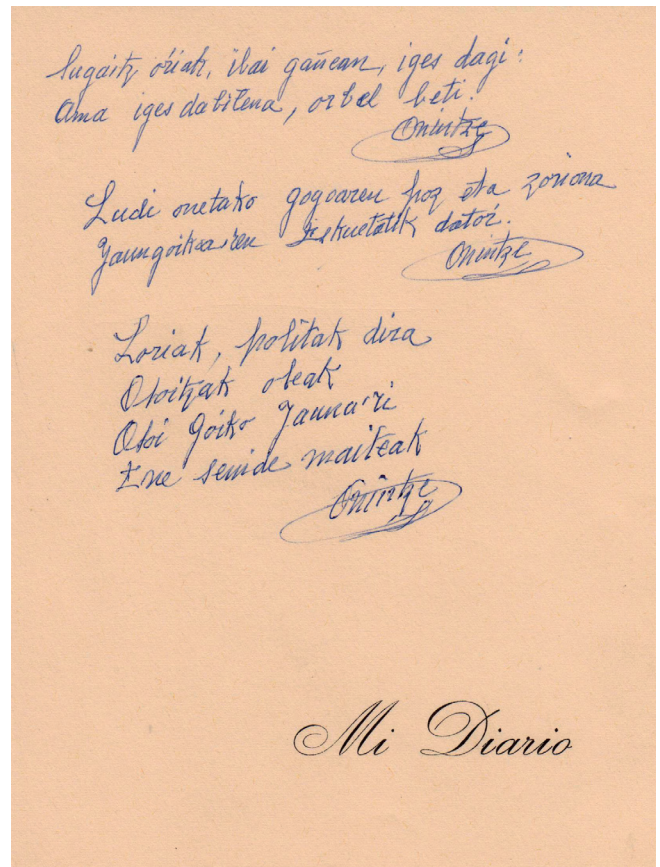 Zugaitz óŕiak, ibai gañean, iges dagi:
Ama iges dabilena, orbel beti.
Onintze
Ludi onetako gogoaren poz eta zoriona
Jaungoikoa'ren Eskuetatik datoŕ.
Onintze
Loriak, politak dira
Otoitzak obeak
Otoi Goiko Jauna'ri
Ene senide maiteak
Onintze
Mi Diario